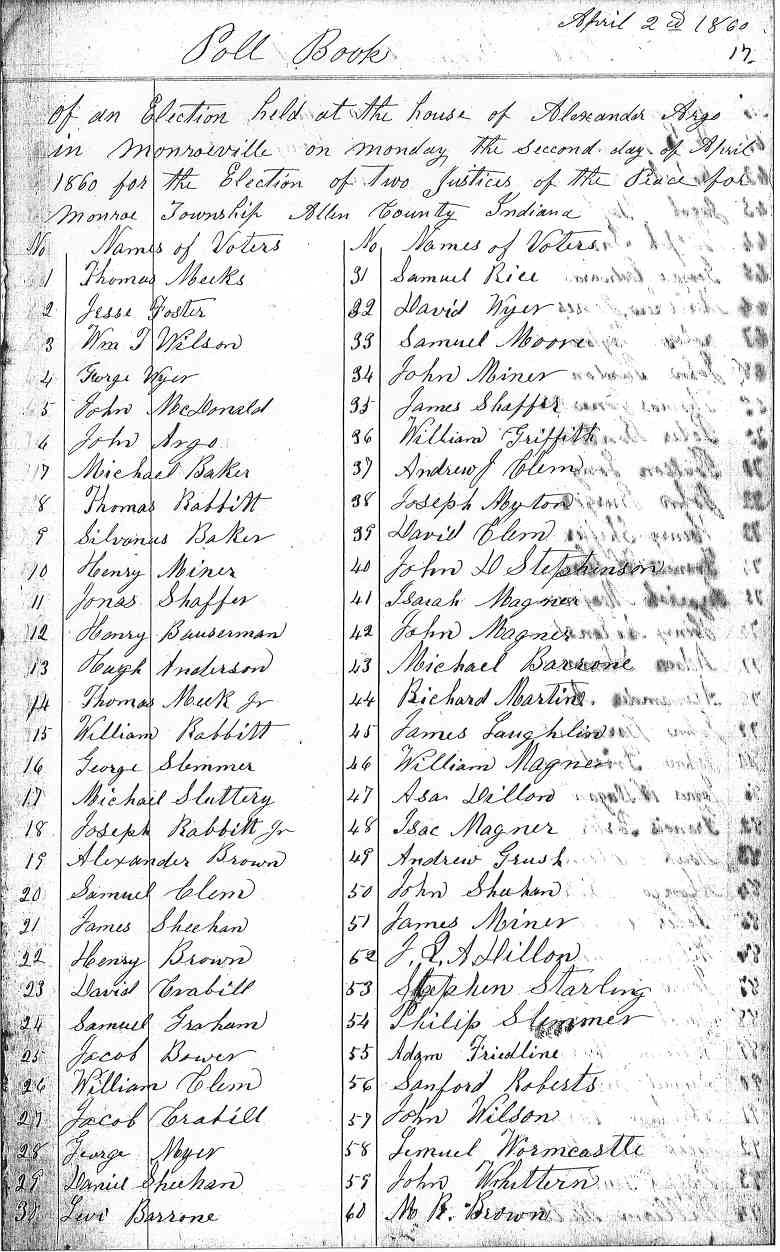 April 2 cd 1860
17
Poll Book
of an Election held at the house of Alexander Argo
in Monroeville on monday the second day of April
1860 for the Election of Two Justices of the Peace for
Monroe Township Allen County Indiana
No Names of Voters
1 Thomas Meeks
2 Jesse Foster
3 Wm T Wilson
4 George Wyer
5 John McDonald
6 John Argo
7 Michael Baker
8 Thomas Rabbitt
9 Silvanus Baker
10 Henry Miner
11 Jonas Shaffer
12 Henry Bauserman
13 Hugh Anderson
14 Thomas Meek Jr
15 William Rabbitt
16 George Slemmer
17 Michail Sluttery
18 Joseph Rabbitt Jr
19 Alexander Brown
20 Samuel Clem
21 James Sheehan
22 Henry Brown
23 David Crabill
24 Samuel Graham
25 Jacob Bower
26 William Clem
27 Jacob Crabill
28 George Myer
29 Daniel Sheehan
30 Levi Barrone
No Names of Voters
31 Samuel Rice
32 David Wyer
33 Samuel Moore
34 John Miner
35 James Shaffer
36 William Griffith
37 Andrew J Clem
38 Joseph Myton
39 David Clem
40 John D Stephinson
41 Isaiah Magner
42 John Magner
43 Michael Barrone
44 Richard Martin
45 James Laughlin
46 William Magner
47 Asa Dillon
48 Isac Magner
49 Andrew Grush
50 John Shuhan
51 James Miner
52 J. Q. A Dillon
53 Stephen Starling
54 Philip Slemmer
55 Adam Friedline
56 Sanford Roberts
57 John Wilson
58 Lemuel Wormcastle
59 John Whittern
60 M R. Brown